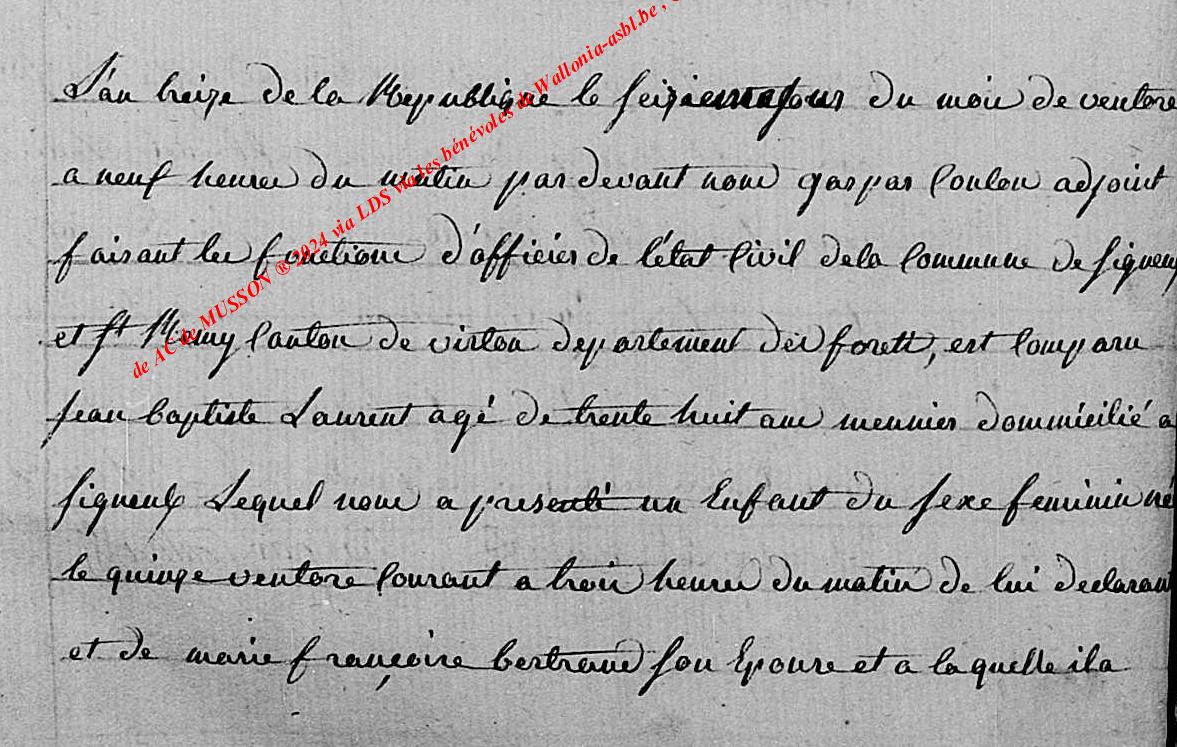 L'an treize de la Republique le seizieme jour du mois de ventose
a neuf heures du matin par devant nous gaspar Coulon adjoint
faisant les fonctions d'officier de l'état Civil de la Commune de signeulx
et st Remy Canton de virton departement des foretts, est Comparu
jean baptiste Laurent agé de trente huit ans meunier dommicilié a
signeulx Lequel nous a presenté un Enfant du sexe feminin né
le quinze ventose Courant a trois heures du matin de lui declarant
et de marie françoise bertrand son Epouse et a laquelle il a
de AC de MUSSON ® 2024 via LDS via les bénévoles de Wallonia-asbl.be ,